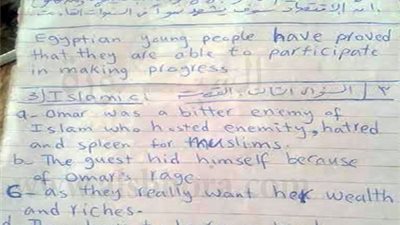 انه الاقتصاد سوف ينشط
Egyptian young people have proved
that they are able to participate
in making progress
3) Islamic. ٣/ السؤال الثالث
a- Omar was a bitter enemy of
Islam who hosted enemity, hatred
and spleen for muslims.
b- The guest hid himself because
of Omar's rage.
6- as they really want her wealth
and riches-